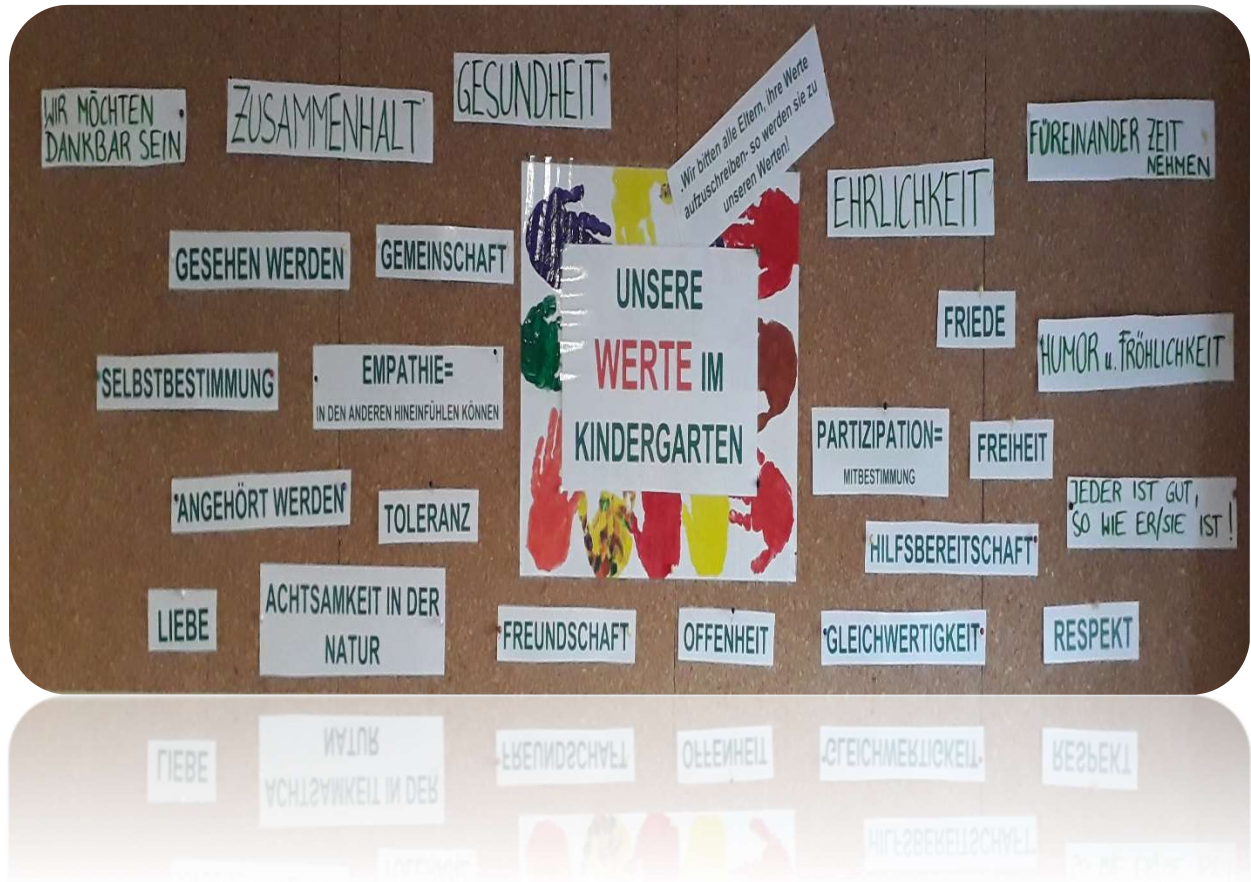 WIR MÖCHTEN
DANKBAR SEIN
ZUSAMMENHALT
GESUNDHEIT
„Wir bitten alle Eltern, ihre Werte
aufzuschreiben- so werden sie zu
unseren Werten!
FÜREINANDER ZEIT
NEHMEN
EHRLICHKEIT
GESEHEN WERDEN
GEMEINSCHAFT
UNSERE
WERTE IM
KINDERGARTEN
FRIEDE
HUMOR u. FRÖHLICHKEIT
SELBSTBESTIMMUNG
EMPATHIE=
IN DEN ANDEREN HINEINFÜHLEN KÖNNEN
PARTIZIPATION=
MITBESTIMMUNG
FREIHEIT
ANGEHÖRT WERDEN
TOLERANZ
JEDER IST GUT,
SO WIE ER/SIE IST!
HILFSBEREITSCHAFT
LIEBE
ACHTSAMKEIT IN DER
NATUR
FREUNDSCHAFT
OFFENHEIT
GLEICHWERTIGKEIT
RESPEKT